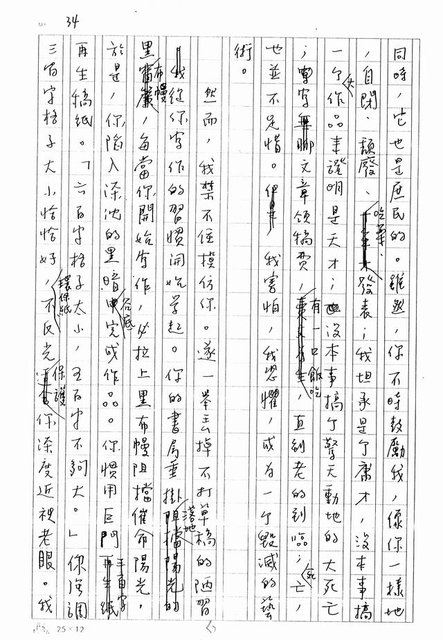 34
同時，它也是庶民的。雖然，你不時鼓勵我，像你一樣地
，自閉、頹廢、吃藥、發表；我坦承是個庸才，沒本事搞
一個大作品來證明是天才；也沒本事搞個驚天動地的大死亡
；專寫無聊文章領稿費，有一口飯吃，直到老的到臨；死亡，
也並不足惜。但我害怕，我恐懼，成為一個毀滅的藝
術。
然而，我禁不住模仿你。遂一舉去掉不打草稿的陋習
，從你寫作的習慣開始學起。你的書房垂掛落地阻擋陽光的
黑布幔，每當你開始寫作，必拉上黑布幔阻擋催命陽光，
於是，你陷入深沈的黑暗谷底完成作品。你慣用巨門三百字
再生稿紙。「六百字格子太小，五百字不夠大。」你強調
三百字格子大小恰恰好，環保紙不反光保護你深度近視老眼。我
25×12